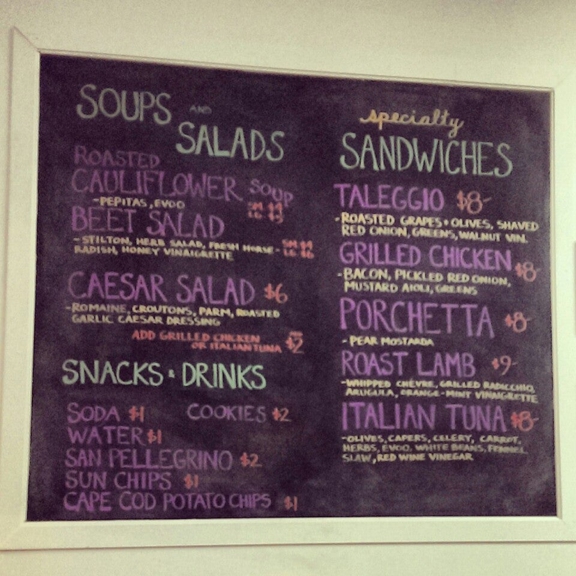 SOUPS AND
SALADS
ROASTED
CAULIFLOWER SOUP
-PEPITAS, EVOO
SM $
LG $
BEET SALAD
-STILTON, HERB SALAD, FRESH HORSE-
RADISH, HONEY VINAIGRETTE
SM $
LG $6
CAESAR SALAD $6
-ROMAINE, CROUTONS, PARM, ROASTED
GARLIC CAESAR DRESSING
ADD GRILLED CHICKEN
OR ITALIAN TUNA $2
SNACKS & DRINKS
SODA $1 COOKIES $2
WATER $1
SAN PELLEGRINO $2
SUN CHIPS $1
CAPE COD POTATO CHIPS $1
specialty
SANDWICHES
TALEGGIO $8-
-ROASTED GRAPES + OLIVES, SHAVED
RED ONION, GREENS, WALNUT VIN.
GRILLED CHICKEN $8-
-BACON, PICKLED RED ONION,
MUSTARD AIOLI, GREENS
PORCHETTA $8-
-PEAR MOSTARDA
ROAST LAMB $9-
-WHIPPED CHEVRE, GRILLED RADICCHIO,
ARUGULA, ORANGE-MINT VINAIGRETTE
ITALIAN TUNA $8-
-OLIVES, CAPERS, CELERY, CARROT,
HERBS, EVOO, WHITE BEANS, FENNEL
SLAW, RED WINE VINEGAR